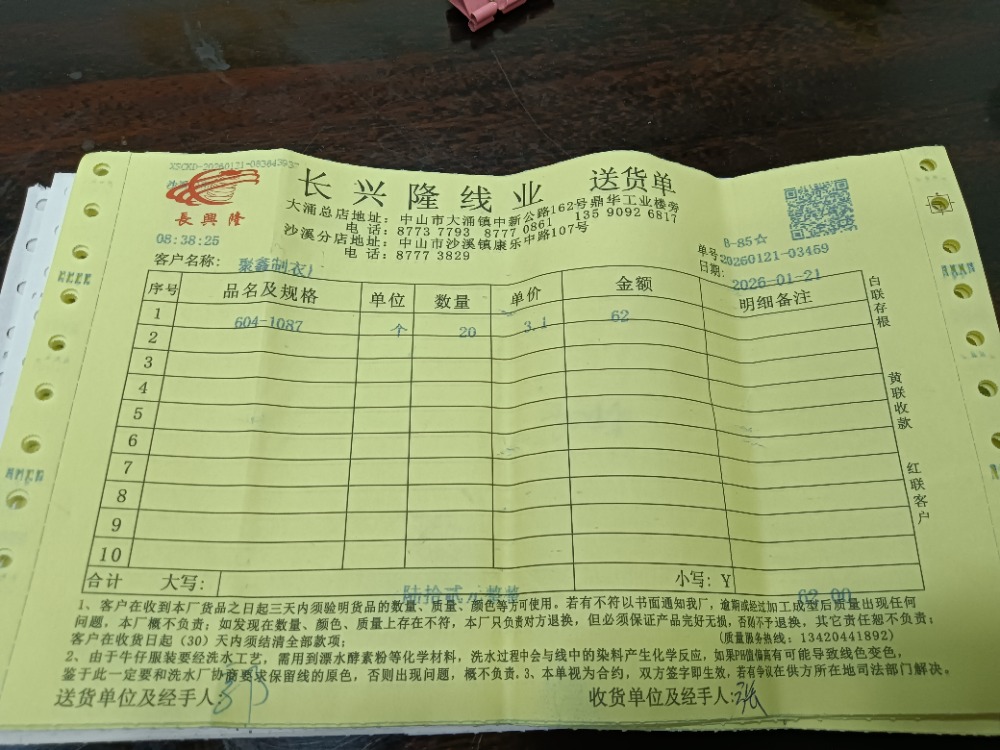 XSCKD-20260121-083843937
長興隆
长兴隆线业 送货单
大涌总店地址：中山市大涌镇中新公路162号鼎华工业楼旁
电 话：8773 7793 8777 0861 135 9092 6817
沙溪分店地址：中山市沙溪镇康乐中路107号
电 话：8777 3829
08:38:25
B-85☆
单号 20260121-03459
客户名称： 聚鑫制衣厂
日期： 2026-01-21
序号 品名及规格 单位 数量 单价 金额 明细备注
1 604-1087 个 20 3.1 62
2
3
4
5
6
7
8
9
10
白联存根
黄联收款
红联客户
合计 大写： 陆拾贰元整 小写：Y 62.00
1、客户在收到本厂货品之日起三天内须验明货品的数量、质量、颜色等方可使用。若有不符以书面通知我厂，逾期或经过加工成型后质量出现任何
问题，本厂概不负责；如发现在数量、颜色、质量上存在不符，本厂只负责对方退换，但必须保证产品完好无损，否则不予退换，其它责任恕不负责；
客户在收货日起（30）天内须结清全部款项； (质量服务热线：13420441892)
2、由于牛仔服装要经洗水工艺，需用到漂水酵素粉等化学材料，洗水过程中会与线中的染料产生化学反应，如果PH值偏高有可能导致线色变色，
鉴于此一定要和洗水厂协商要求保留线的原色，否则出现问题，概不负责。3、本单视为合约，双方签字即生效，若有争议在供方所在地司法部门解决。
送货单位及经手人： 收货单位及经手人：张